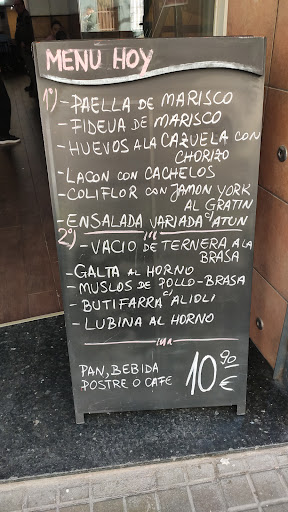 MENU HOY
1º) - PAELLA DE MARISCO
- FIDEUA DE MARISCO
- HUEVOS A LA CAZUELA CON
CHORIZO
- LACON CON CACHELOS
- COLIFLOR CON JAMON YORK
AL GRATIN
- ENSALADA VARIADA C/ ATUN
2º) - VACIO DE TERNERA A LA
BRASA
- GALTA AL HORNO
- MUSLOS DE POLLO - BRASA
- BUTIFARRA C/ ALIOLI
- LUBINA AL HORNO
PAN, BEBIDA
POSTRE O CAFE
10,90 €